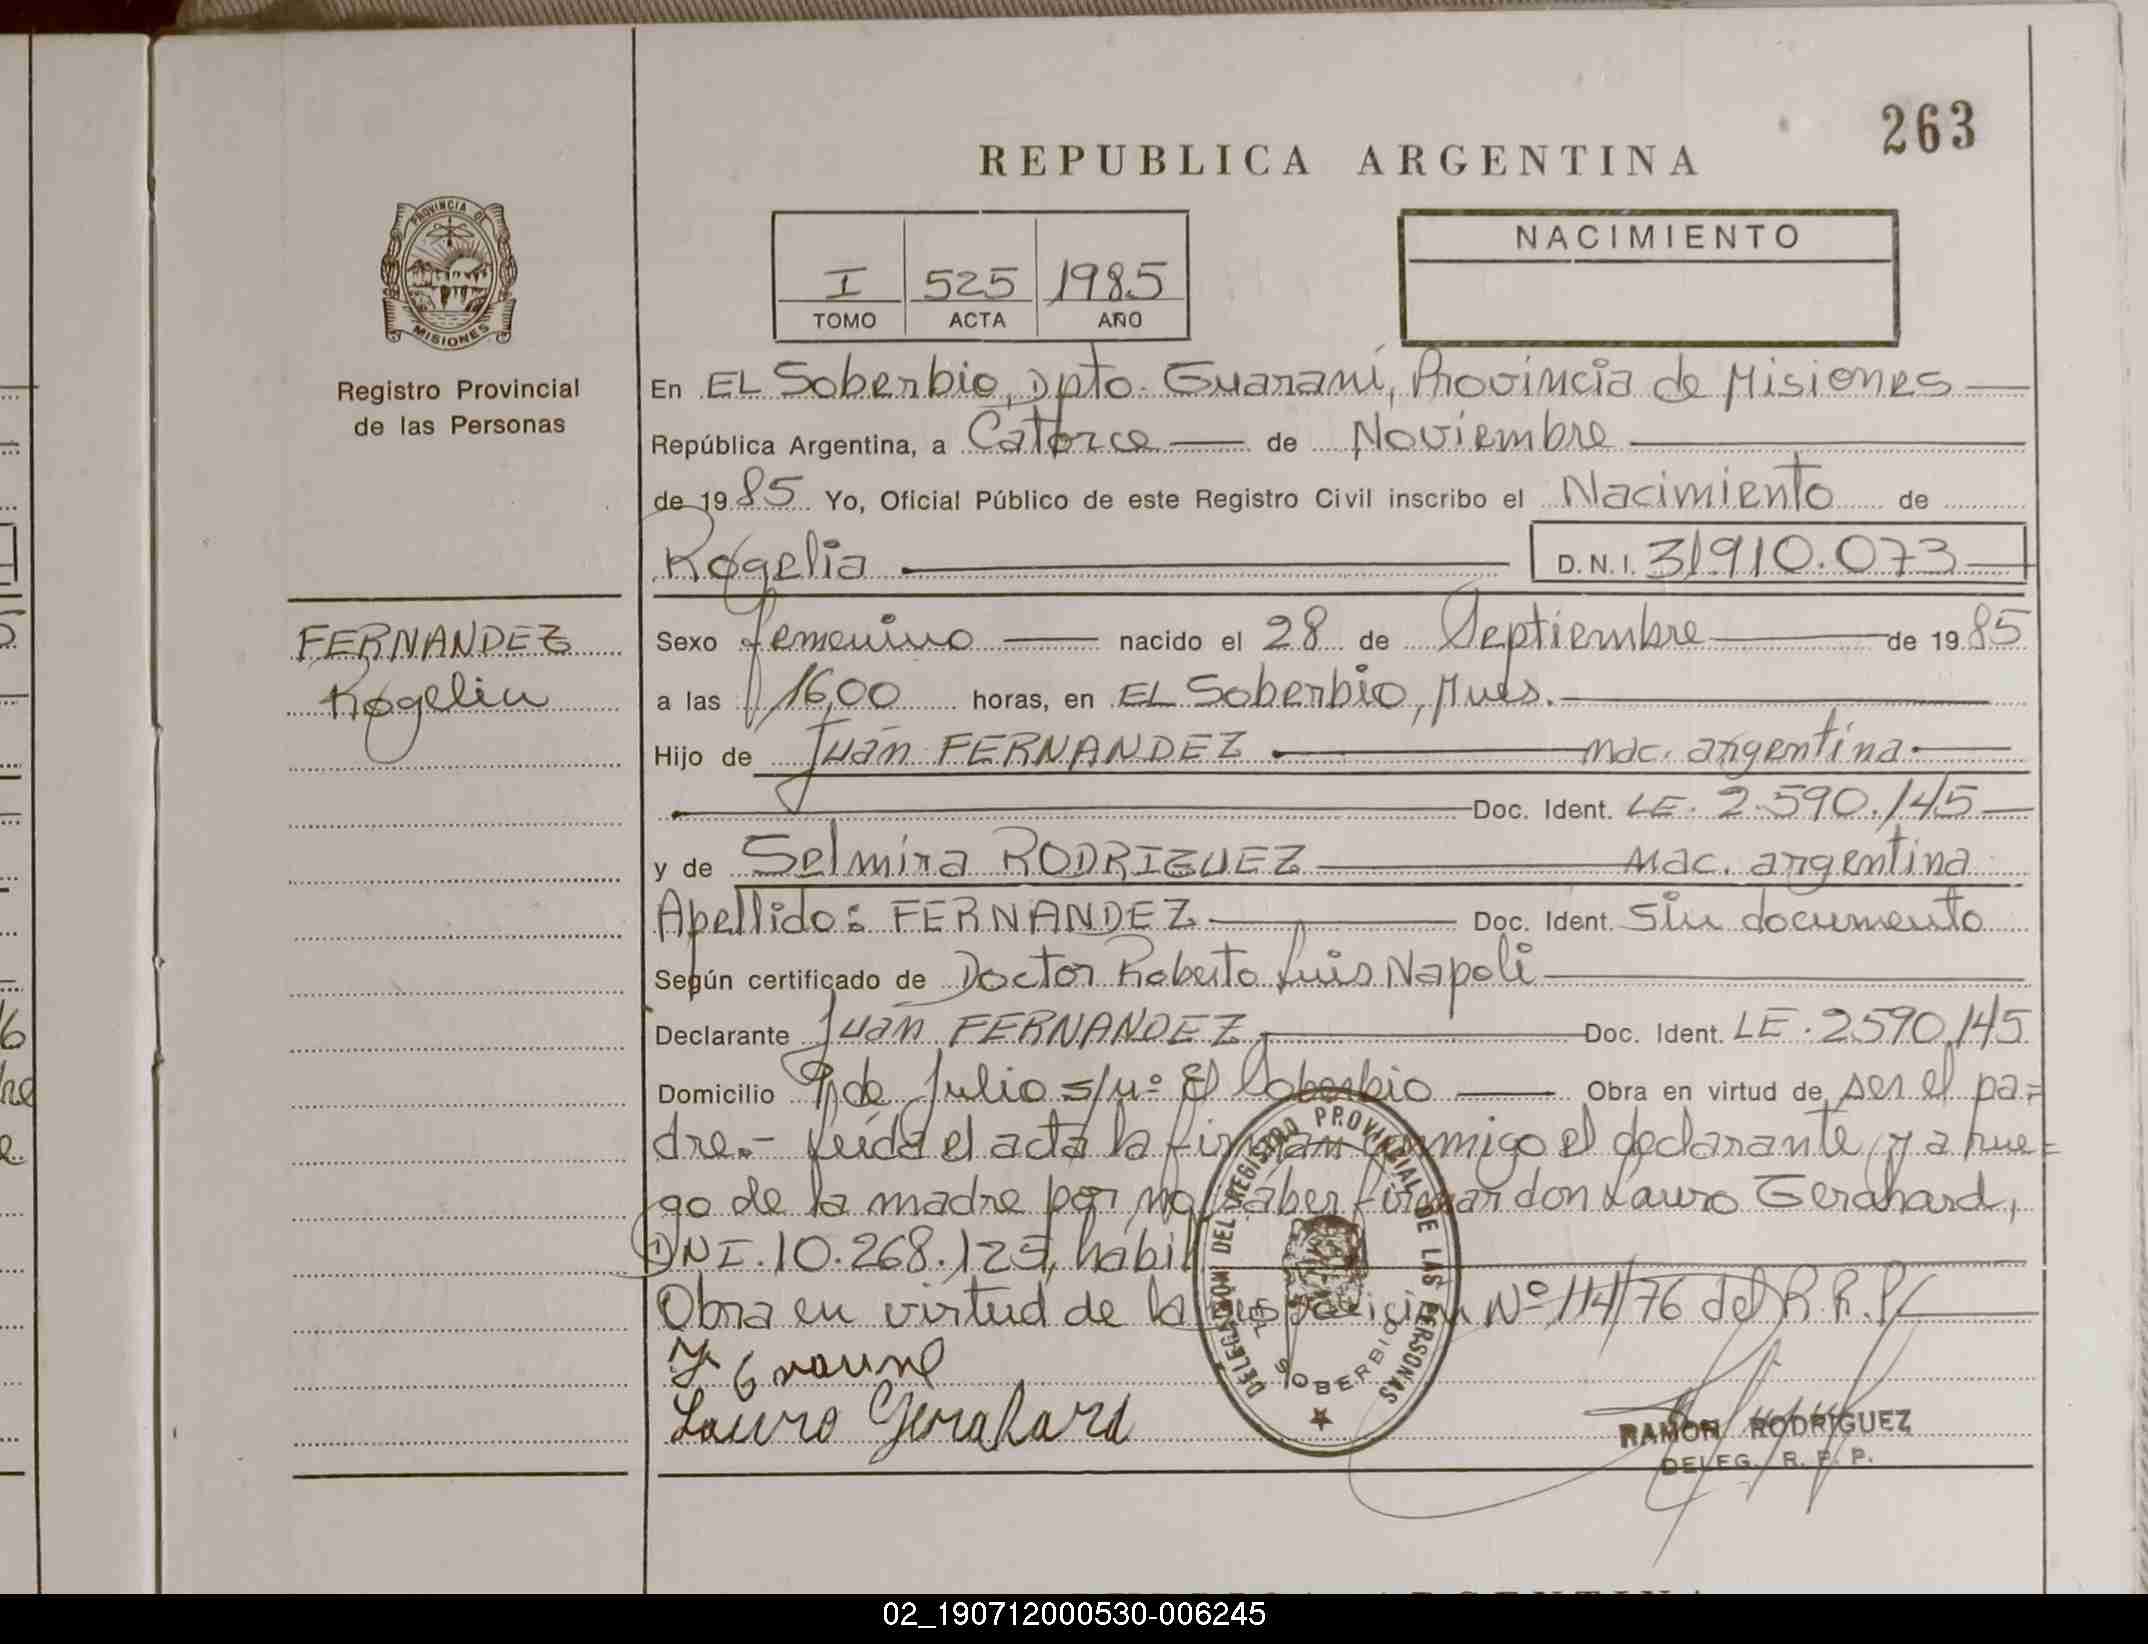 263
REPUBLICA ARGENTINA
PROVINCIA DE
MISIONES
Registro Provincial
de las Personas
I 525 1985
TOMO ACTA AÑO
NACIMIENTO
FERNANDEZ
Rogelia
En EL Soberbio, Dpto. Guaraní, Provincia de Misiones
República Argentina, a Catorce de Noviembre
de 1985 Yo, Oficial Público de este Registro Civil inscribo el Nacimiento de
Rogelia D.N.I. 31910.073
Sexo femenino nacido el 28 de Septiembre de 1985
a las 16,00 horas, en EL Soberbio, Mnes.
Hijo de Juan FERNANDEZ nac. argentina
Doc. Ident. LE. 2.590.145
y de Selmira RODRIGUEZ nac. argentina
Apellido: FERNANDEZ Doc. Ident. Sin documento
Según certificado de Doctor Roberto Luis Napoli
Declarante Juan FERNANDEZ Doc. Ident. LE. 2590.145
Domicilio 9 de Julio s/nº El Soberbio Obra en virtud de ser el pa=
dre.- Leída el acta la firman conmigo el declarante y a rue=
go de la madre por no saber firmar don Lauro Gerahard,
DNI. 10.268.125, hábil
Obra en virtud de la Disposición Nº 114/76 del R.R.P.
Lauro Gerahard
DELEGACION DEL REGISTRO PROVINCIAL DE LAS PERSONAS
EL SOBERBIO
RAMON RODRIGUEZ
DELEG. R. P. P.
02_190712000530-006245